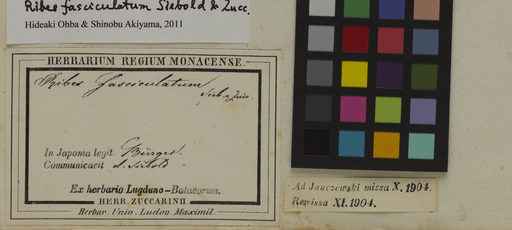 Ribes fasciculatum Siebold & Zucc.
Hideaki Ohba & Shinobu Akiyama, 2011
HERBARIUM REGIUM MONACENSE.
Ribes fasciculatum
Sieb. & Zucc.
In Japonia legit Bürger.
Communicavit v. Siebold.
Ex herbario Lugduno-Batavorum.
HERB. ZUCCARINII
Herbar. Univ. Ludov. Maximil.
Ad Janczewski missa X. 1904.
Remissa XI. 1904.